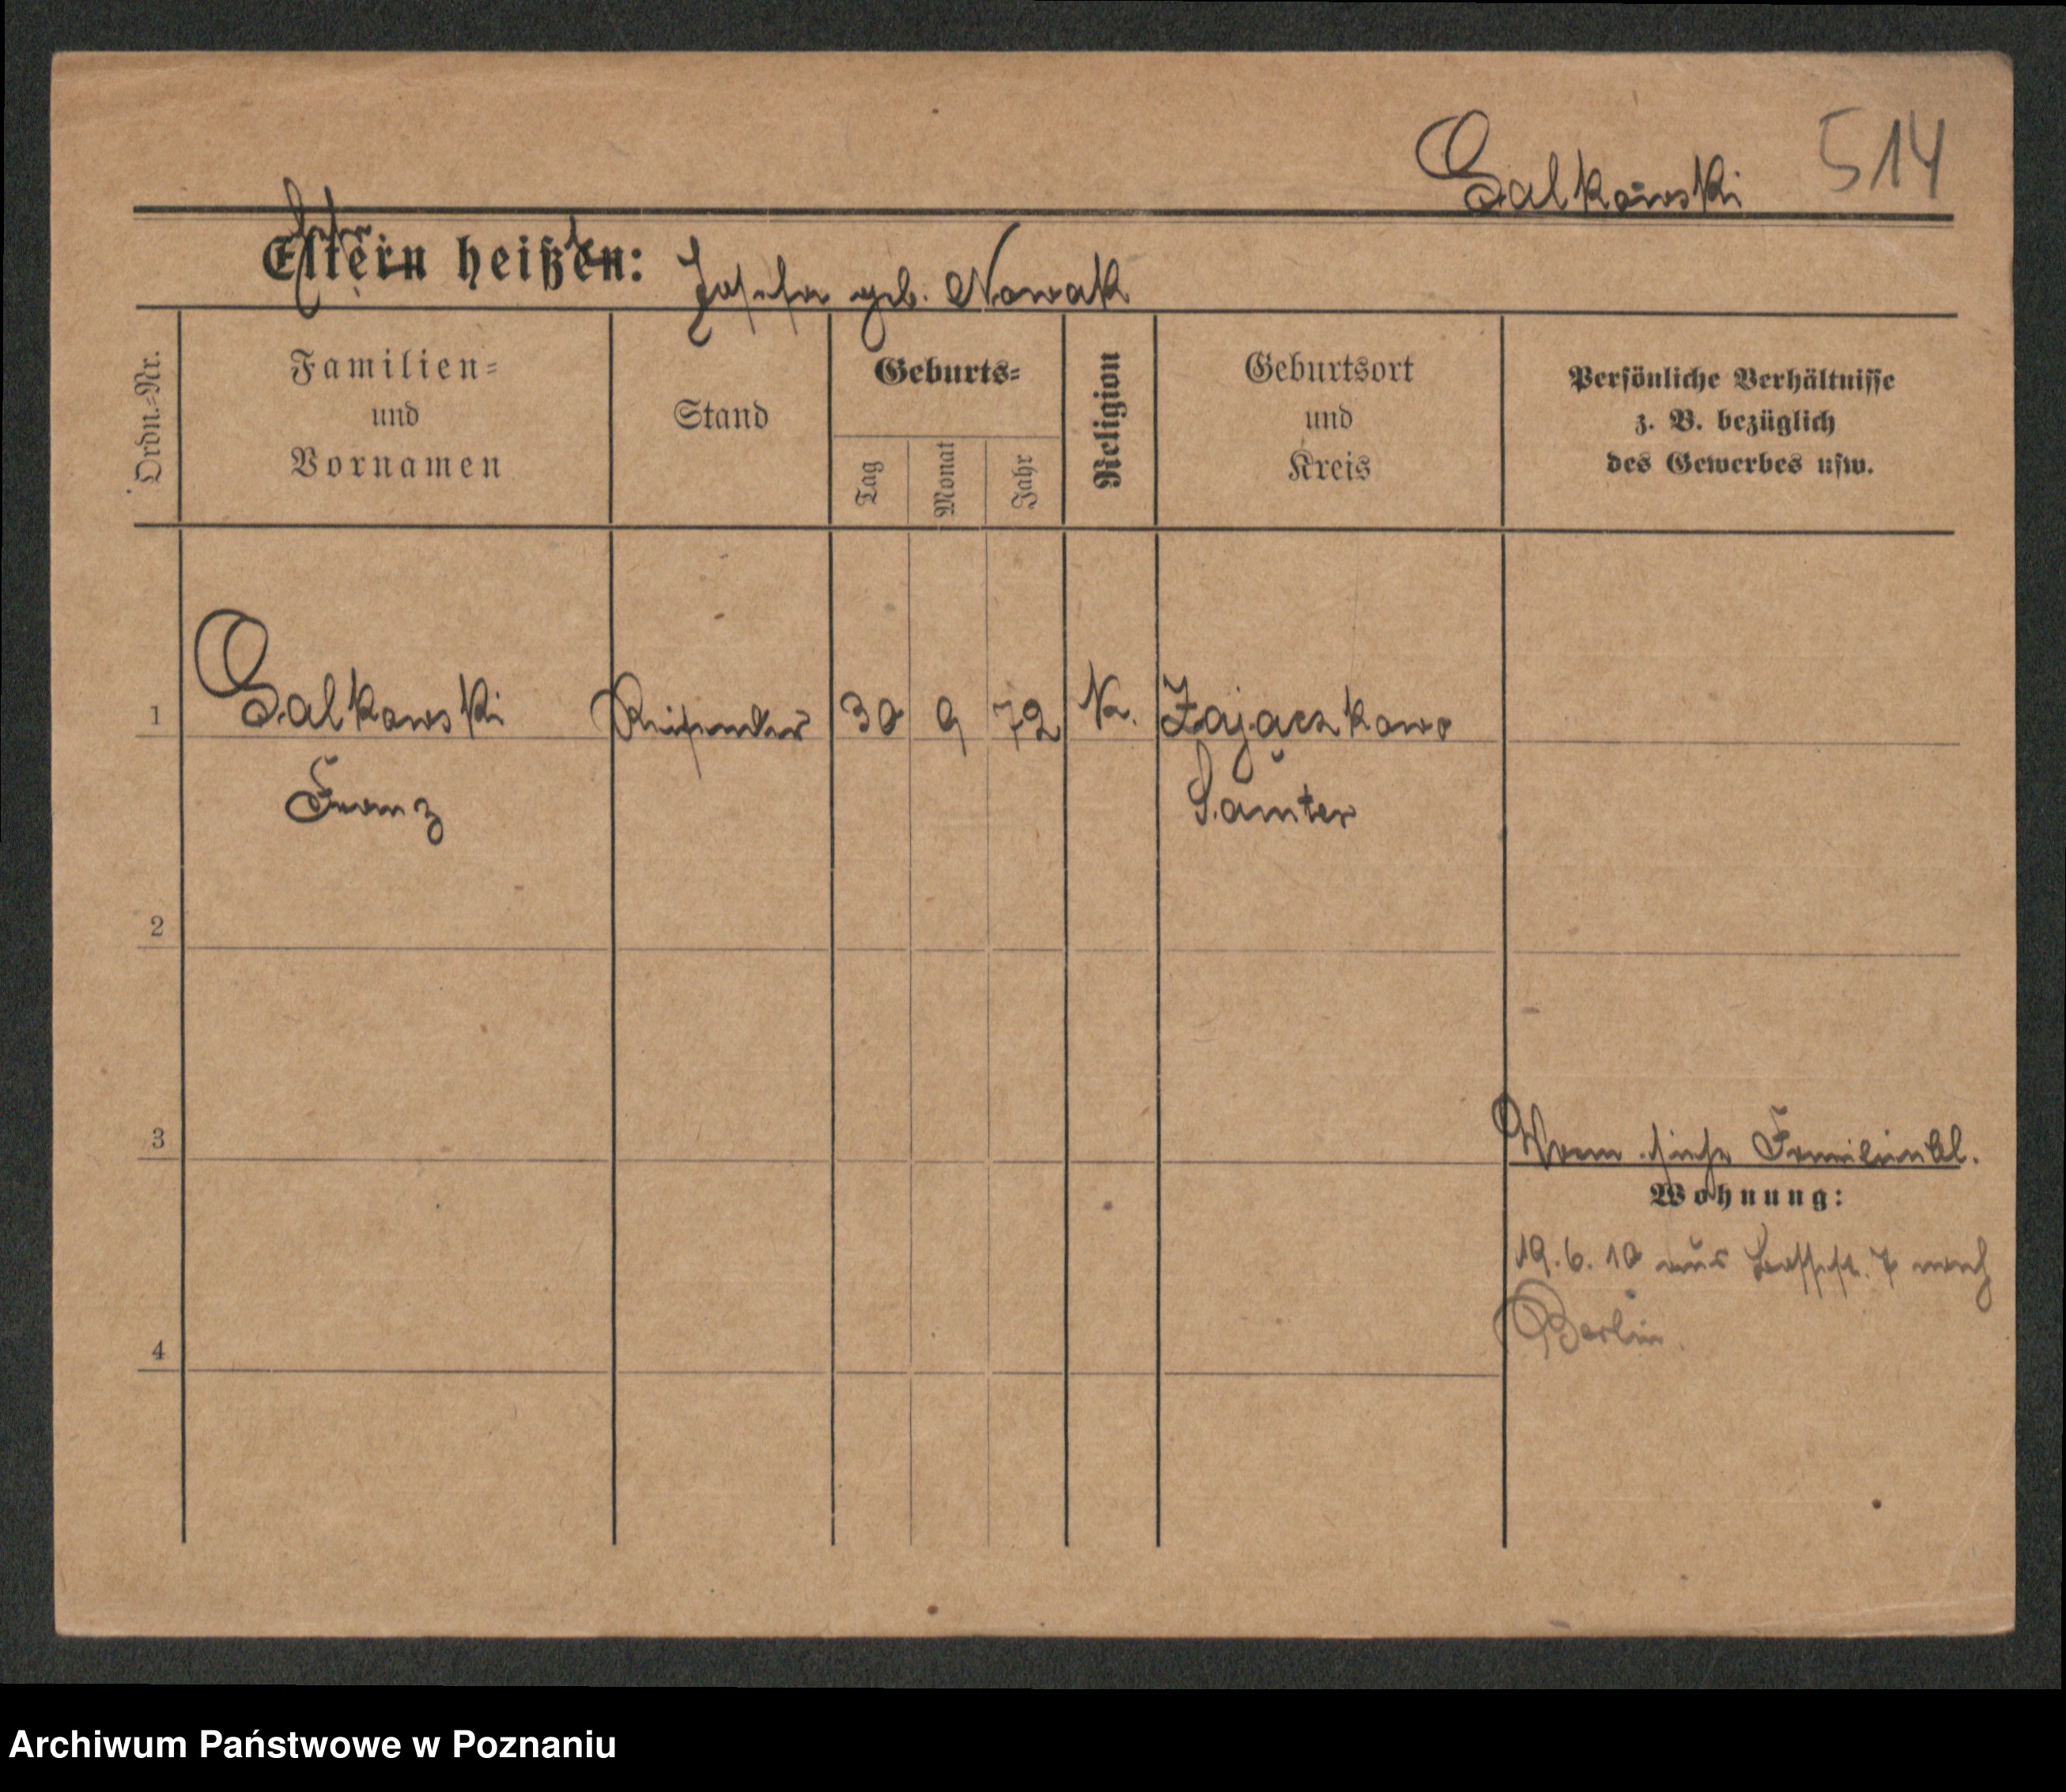 Galkowski 514
Eltern heißen: Josefa geb. Nowak
Ordn.=Nr.
Familien=
und
Vornamen
Stand
Geburts=
Tag
Monat
Jahr
Religion
Geburtsort
und
Kreis
Persönliche Verhältnisse
z. B. bezüglich
des Gewerbes usw.
1 Galkowski Reisender 30 9 72 K. Zajączkowo
Franz Samter
2
3
siehe Familienbl.
Wohnung:
19.6.10 aus 7 nach
Berlin.
4
Archiwum Państwowe w Poznaniu